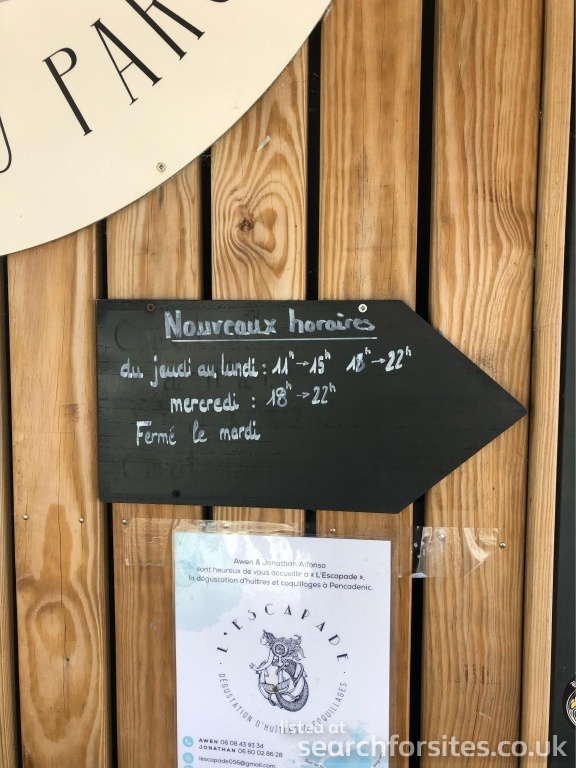 U PARC
Nouveaux horaires
du jeudi au lundi : 11h → 15h 18h → 22h
mercredi : 18h → 22h
Fermé le mardi
Awen & Jonathan Alfonso
sont heureux de vous accueillir à « L'Escapade »,
la dégustation d'huîtres et coquillages à Pencadenic.
L'ESCAPADE
DÉGUSTATION D'HUÎTRES COQUILLAGES
AWEN 06 08 43 93 34
JONATHAN 06 60 02 86 28
lescapade056@gmail.com
listed at
searchforsites.co.uk